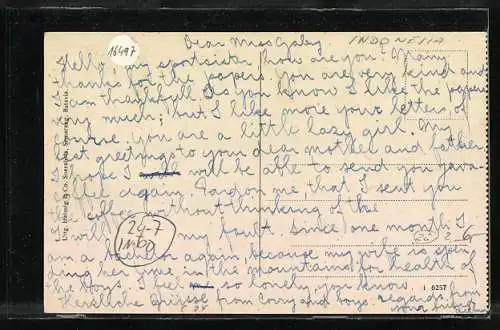 Dear Miss Gaby
INDONESIA
16497
Hello, my spotsister how are you? Many
thanks for the papers. You are very kind and
I am thankfull. As you know I like the papers
very much; but I like more your letters, of
course. You are a little lazy girl. My
best greetings to your dear mother and father.
I hope I will be able to send you Java
coffee again. Pardon me, that I sent you
the coffee without thinking of the
I will my fault. Since one month I
am a bachelor again, because my wife is spen-
ding her time in the mountains for health of
the boys. I feel so lonely, you know.
Herzliche Grüsse from Conny and boys. regards from
your friend
24-7
INDO
Uitg. Hellmig & Co. Soerabaia, Semarang, Batavia.
1 0257